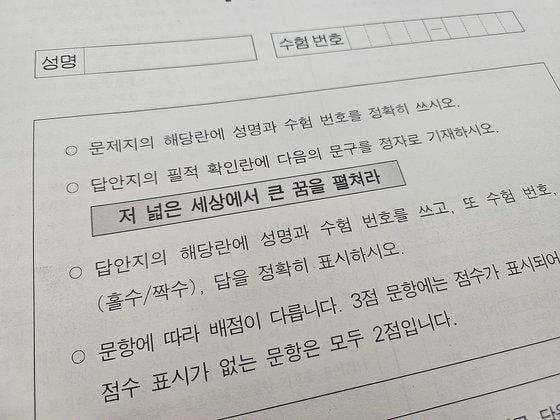 성명
수험 번호 –
○ 문제지의 해당란에 성명과 수험 번호를 정확히 쓰시오.
○ 답안지의 필적 확인란에 다음의 문구를 정자로 기재하시오.
저 넓은 세상에서 큰 꿈을 펼쳐라
○ 답안지의 해당란에 성명과 수험 번호를 쓰고, 또 수험 번호,
(홀수/짝수), 답을 정확히 표시하시오.
○ 문항에 따라 배점이 다릅니다. 3점 문항에는 점수가 표시되어
점수 표시가 없는 문항은 모두 2점입니다.